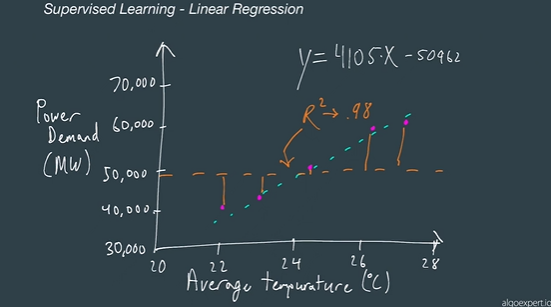 Supervised Learning - Linear Regression
y = 4105·X - 50962
R² → .98
Power
Demand
(MW)
70,000
60,000
50,000
40,000
30,000
20
22
24
26
28
Average temperature (°C)
algoexpert.io